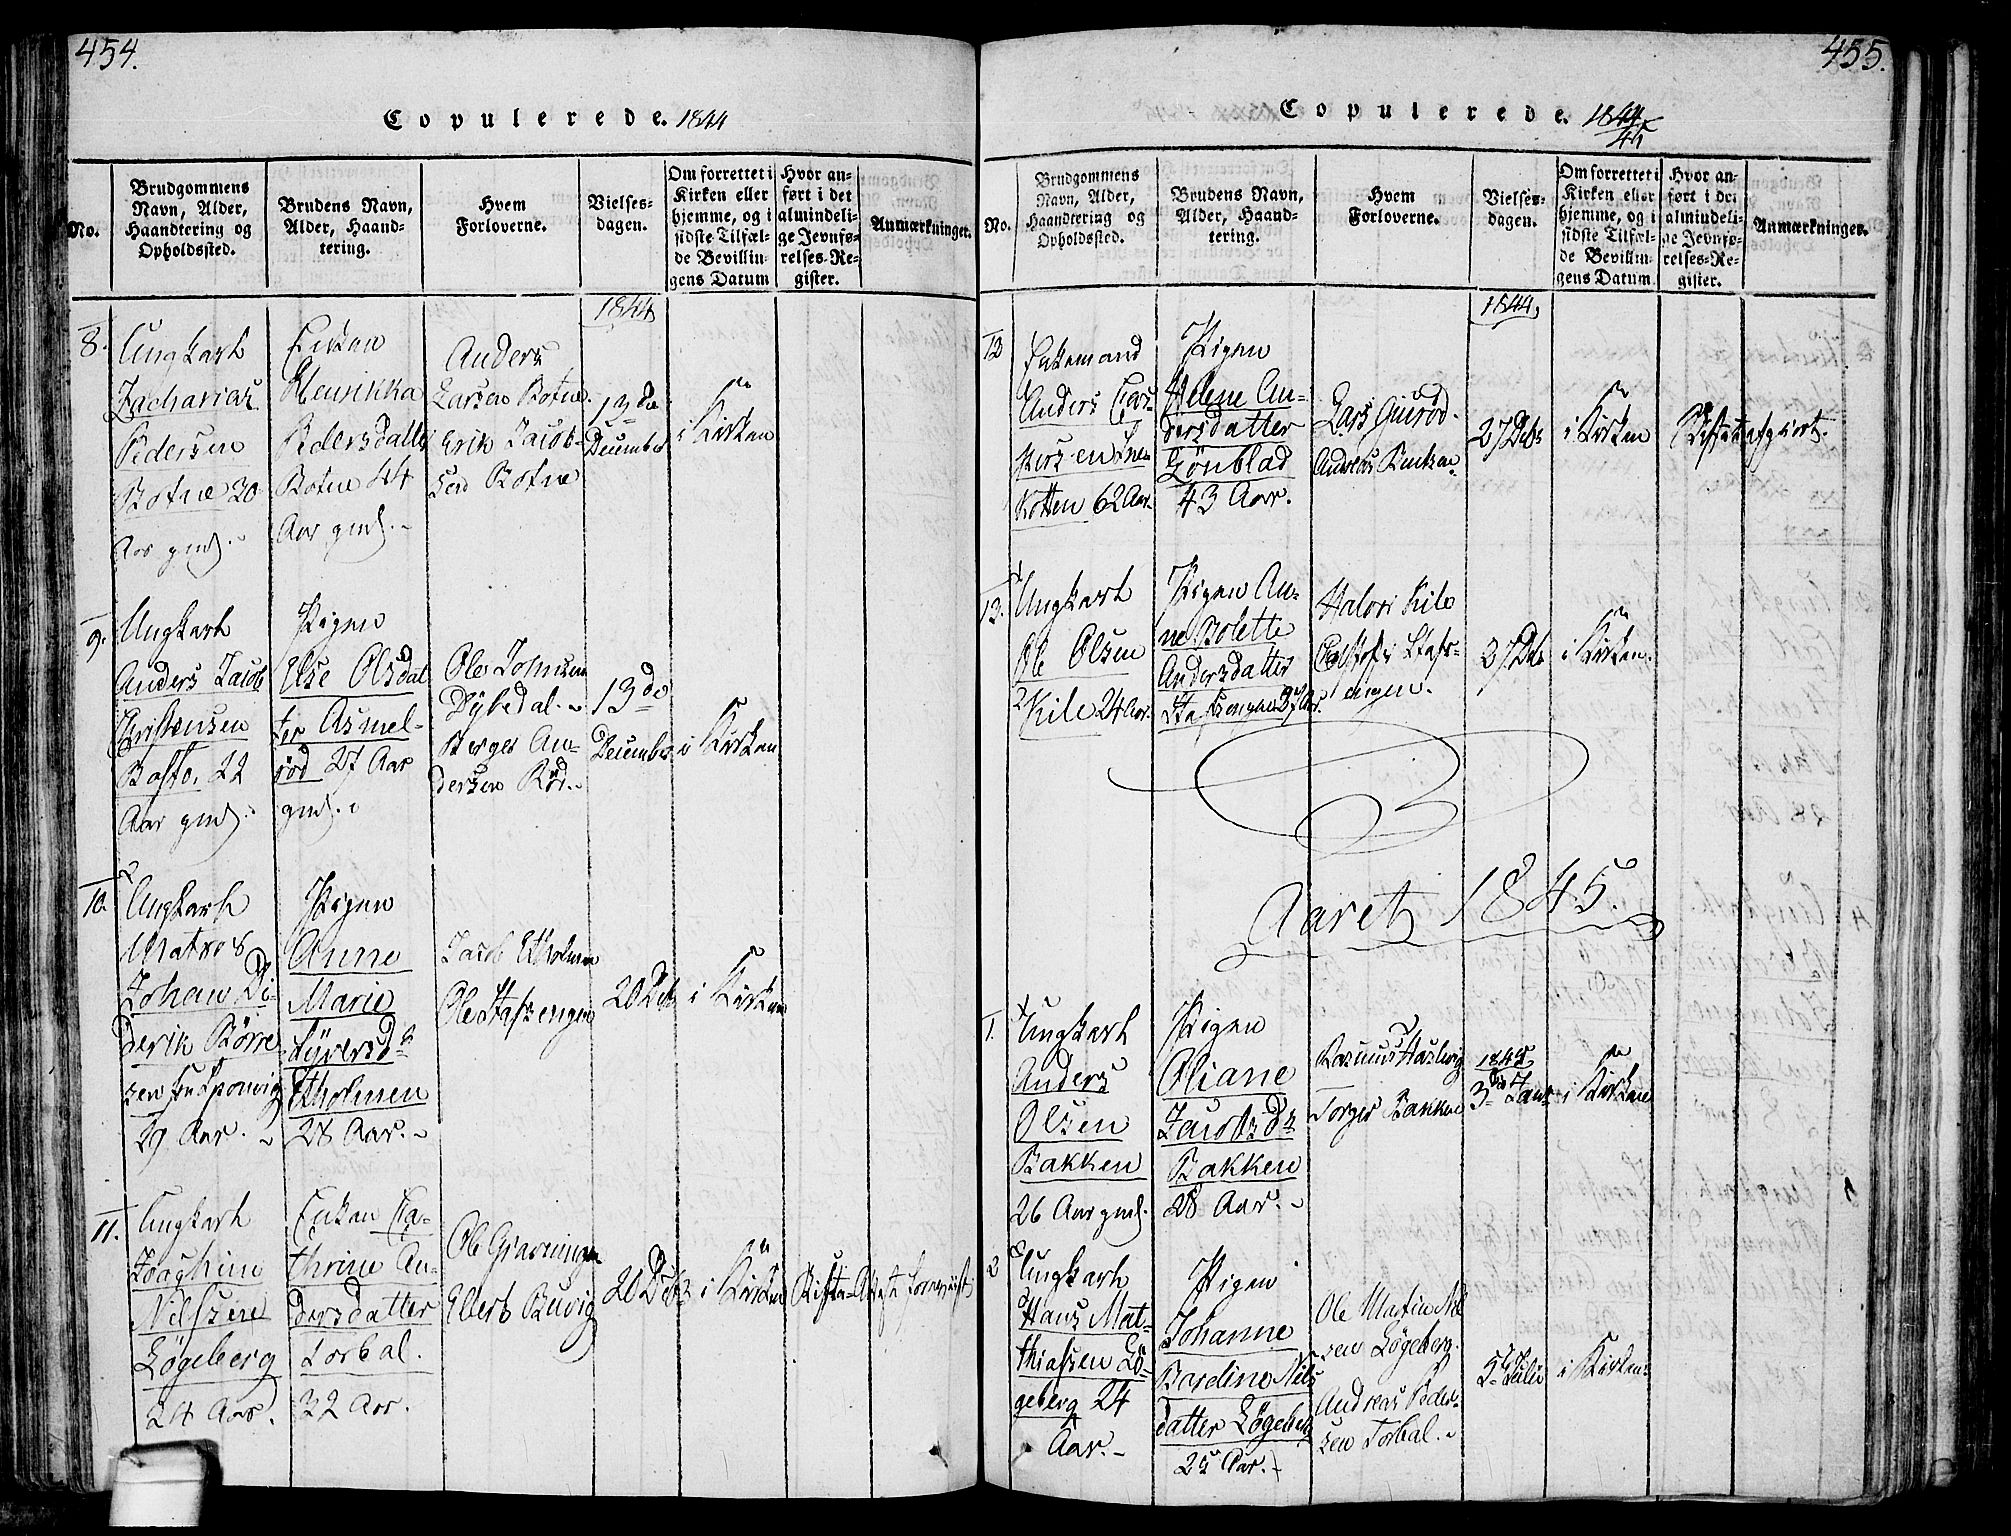 454.
Copulerede. 1844
No.
Brudgommens
Navn, Alder,
Haandtering og
Opholdssted.
Brudens Navn,
Alder, Haand-
tering.
Hvem
Forloverne.
Vielses-
dagen.
Om forrettet i
Kirken eller
hjemme, og i
sidste Tilfæl-
de Bevillin-
gens Datum
Hvor an-
ført i det
almindeli-
ge Jevnfø-
relses-Re-
gister.
Anmærkninger.
1844
8.
Ungkarl
Zacharias
Pedersen
Botne 30
Aar gml.
Enken
Henrikka
Pedersdatter
Botne 44
Aar gml.
Anders
Larsen Botne
Erik Jacob-
sen Botne
13de
December
i Kirken
9.
Ungkarl
Anders Jacob
Christensen
Basto, 22
Aar gml.
Pigen
Else Olsdat
ter Asmel-
rød 27 Aar
gml.
Ole Johnsen
Dybedal.
Børger An-
dersen Rød.
13de
December
i Kirken
10.
Ungkarl
Matros
Johan Di-
derik Børre-
sen
29 Aar.
Pigen
Anne
Marie
Syversd
Etholmen
28 Aar.
Jacob Etholmen
Ole Stafsengen
20 Debr
i Kirken
11.
Ungkarl
Joachim
Nilssen
Løgeberg
24 Aar.
Enken Ca-
thrine An-
dersdatter
Torbal.
32 Aar.
Ole Graveningen
Ellert Buvig
20 Debr
i Kirken
455.
Copulerede. 1844
45
No.
Brudgommens
Navn, Alder,
Haandtering og
Opholdssted.
Brudens Navn,
Alder, Haand-
tering.
Hvem
Forloverne.
Vielses-
dagen.
Om forrettet i
Kirken eller
hjemme, og i
sidste Tilfæl-
de Bevillin-
gens Datum
Hvor an-
ført i det
almindeli-
ge Jevnfø-
relses-Re-
gister.
Anmærkninger.
1844
12
Enkemand
Anders
62 Aar.
Pigen
Helene An-
dersdatter
Gönblad
43 Aar.
Lars
Andreas
27 Debr
i Kirken
Skifte afgiort.
13.
Ungkarl
Ole Olsen
Kile 24 Aar.
Pigen An-
ne Bolette
Andersdatter
Stafsengen
Halvor Kile
Stafs-
engen.
27 Debr
i Kirken.
Aaret 1845.
1.
Ungkarl
Anders
Olsen
Bakken
26 Aar gml.
Pigen
Oliane
Jacobsdr
Bakken
28 Aar.
Rasmus Haslevig
Torger Bakken
1845
3die Janr
i Kirken
2
Ungkarl
Hans Mat-
thiassen Lø-
geberg 24
Aar.
Pigen
Johanne
Bardine Nils
datter Løgeberg
25 Aar.
Ole Martin Nil
sen Løgeberg.
Andreas Peder-
sen Torbal.
5te Julii
i Kirken.